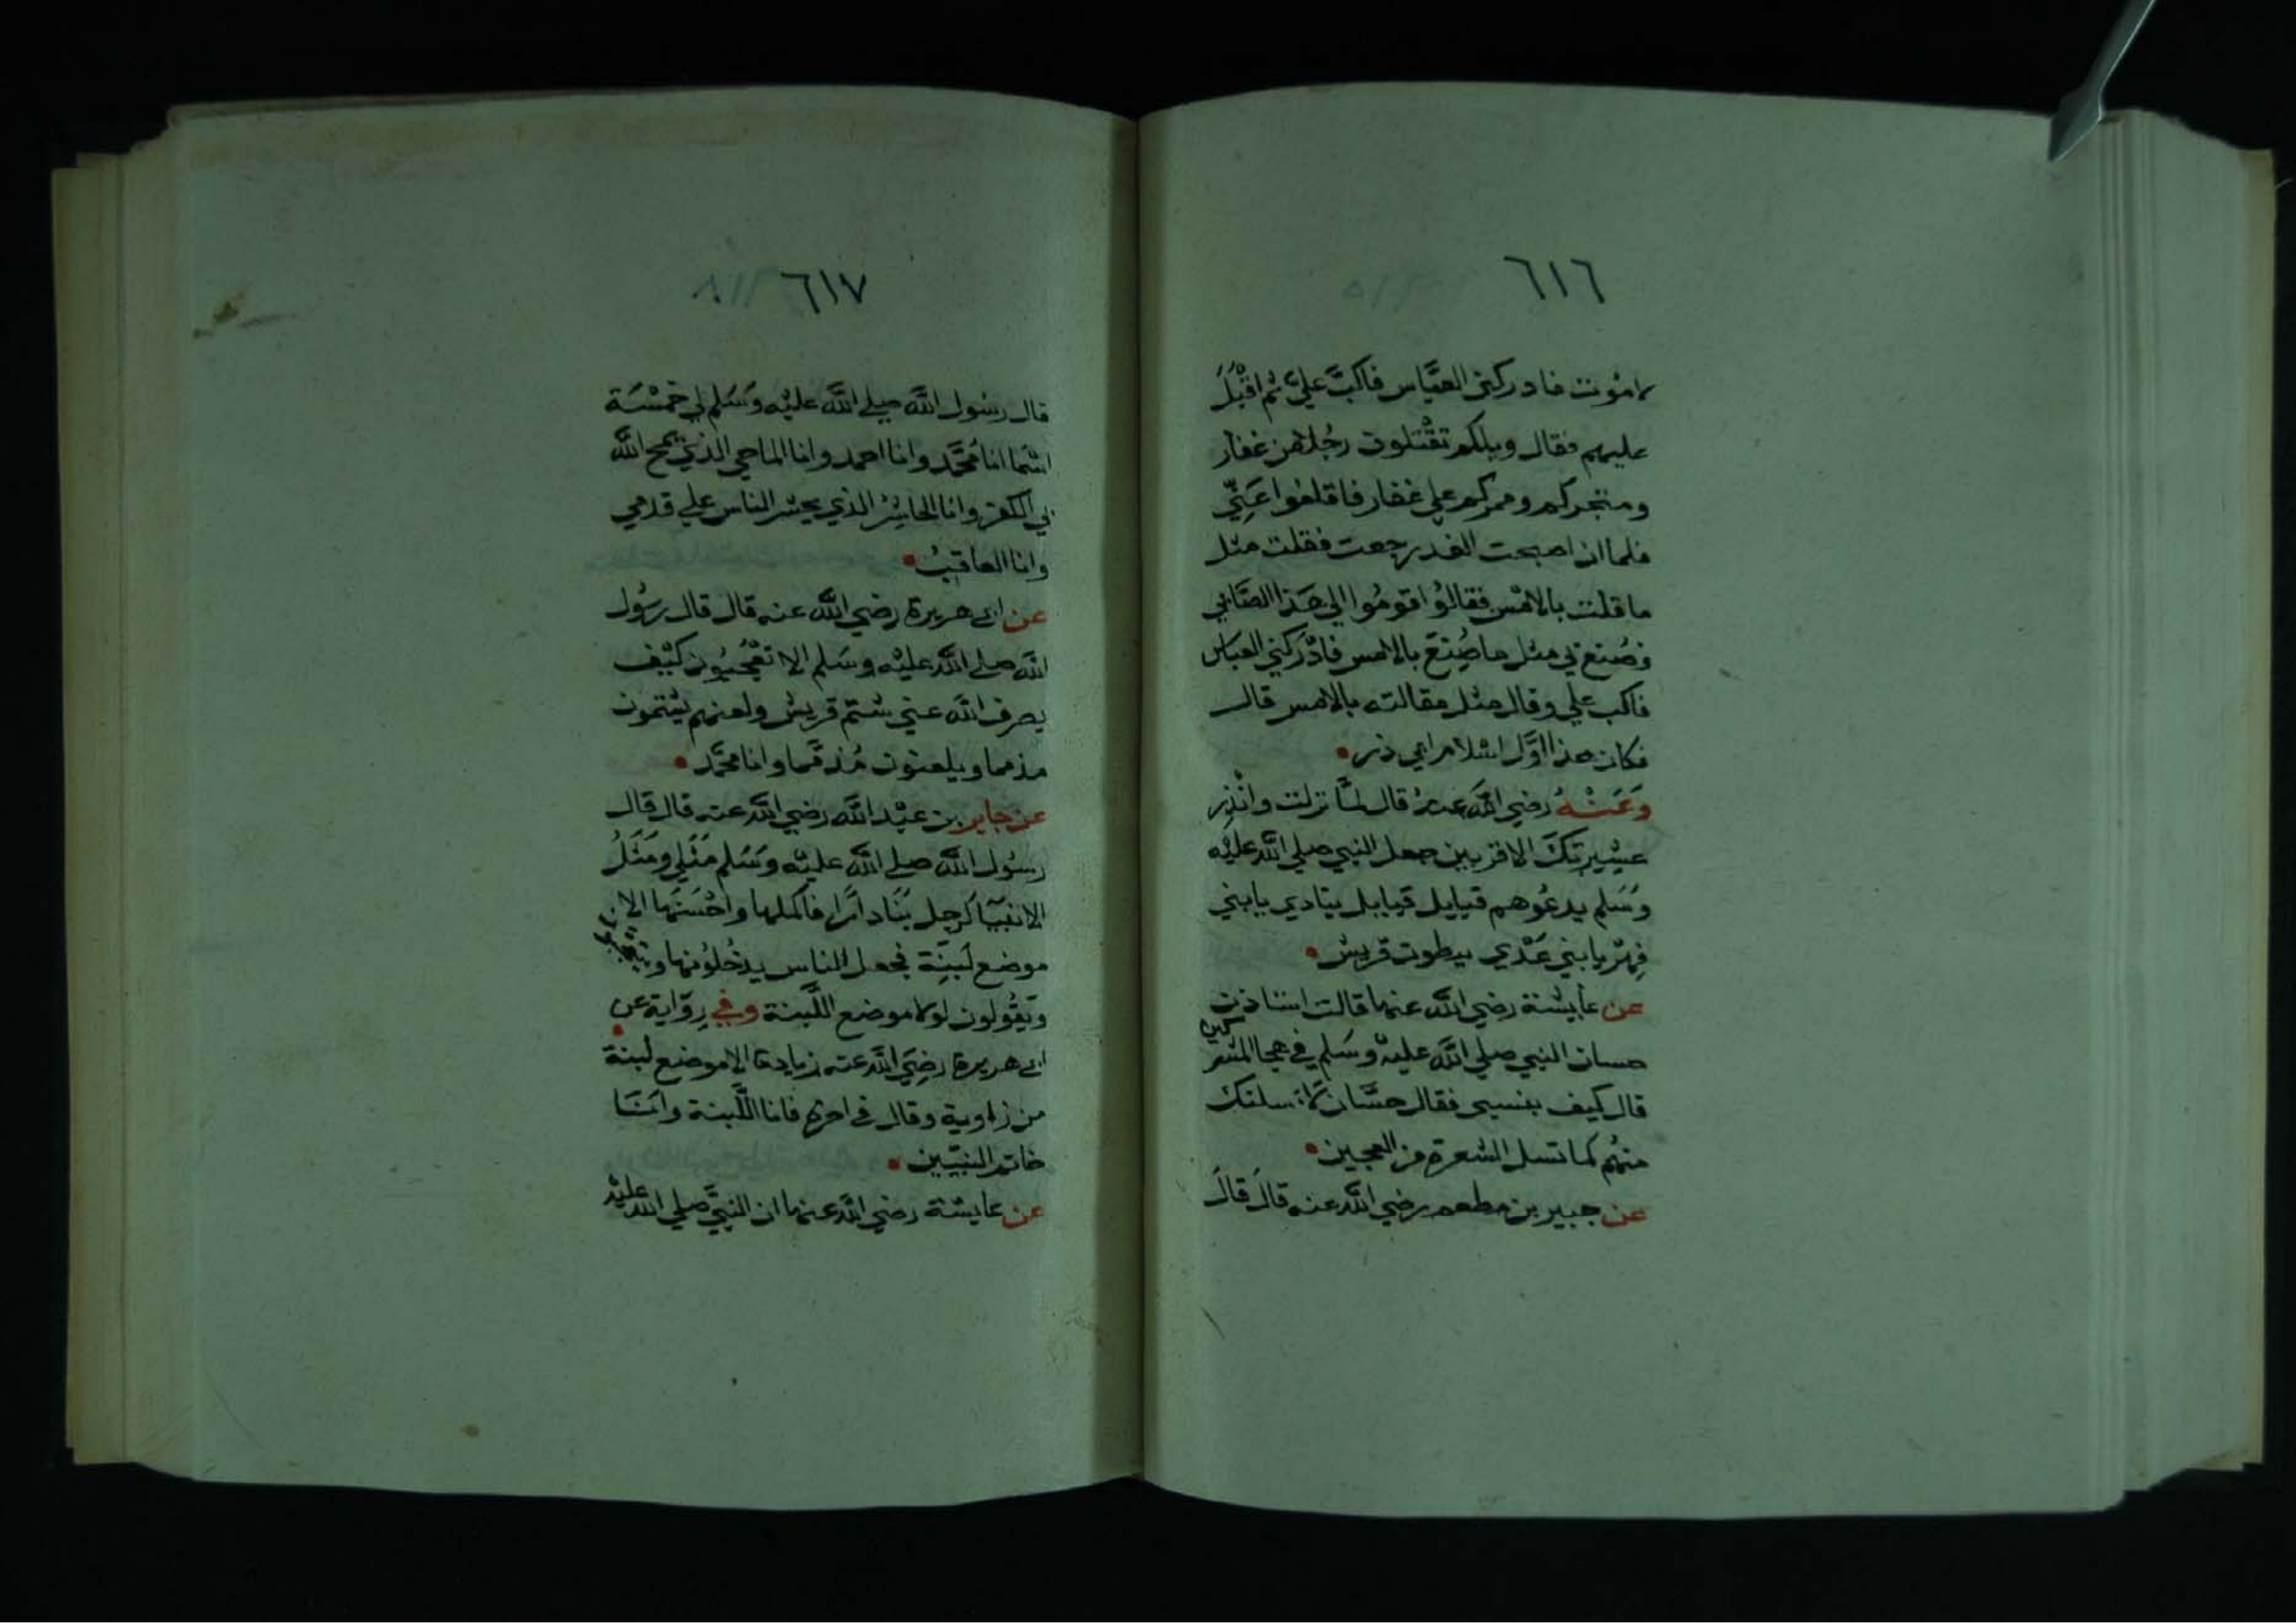 ٦١٦
لاموت فادركني العبَّاس فاكبَّ عليَّ ثم اقبْلَ
عليهم فقال ويلكم تقْتلون رجُلا من غفار
ومتجركم وممركم علي غفار فاقلعوا عَنِّي
فلما ان اصبحت الغد رجعت فقلت مثل
ما قلت بالامْس فقالوُا قومُوا الي هَذا الصَّابي
فصُنع بي مثل ما صُنِعَ بالامس فادْرَكني العباس
فاكب علي وقال مثل مقالته بالامس قال
فكان هذا اوَّل اسْلام ابي ذر
وَعَنْهُ رضي الله عنهُ قال لمَّا نزلت وانْذِر
عشيرتكَ الاقربين جعل النبي صلي الله عليْه
وَسَلم يدعُوهم قبايل قبايل ينادي يابني
فِهْر يا بني عَدْي ببطون قريش
عن عايشة رضي الله عنها قالت استاذن
حسان النبي صلي الله عليْه وسَلم في هجا المشركين
قال كيف بنسبي فقال حسَّان لاسلنك
منهُم كما تسل الشعرة من العجين
عن جبير بن مطعم رضي الله عنه قالَ قالَ
٦١٧
قال رسُول الله صلي الله عليْه وَسَلم لي خمسْة
اسْما انا مُحمَّد وانا احمد وانا الماحي الذي يمح الله
بي الكفر وانا الحاشِر الذي يحشر الناس علي قدمي
وانا العاقبُ
عن ابي هريرة رضي الله عنه قال قال رسُول
الله صلي الله عليْه وسَلم الا تعْجبُون كيْف
يصرف الله عني شتم قريش ولعنهم يشتمون
مذمما ويلعنون مُذمَّما وانا محمَّد
عن جابر بن عبْد الله رضي الله عنه قال قال
رسُول الله صلي الله عليْه وَسَلم مَثلي ومَثلُ
الانبيَا كرجل بَنَا دارًا فاكملها واحْسَنَها الا
موضع لَبنَة فجعل الناس يدخُلوُنها ويتعَجبون
ويَقُولون لولا موضع اللَّبنة وفي رِوَاية عن
ابي هريرة رضِيَ الله عنه زيادة الا موضع لبنة
من زاوية وقال في اخره فانا اللَّبنة وانَا
خاتم النبيّين
عن عايشة رضي الله عنها ان النبيَّ صلي الله عليْه